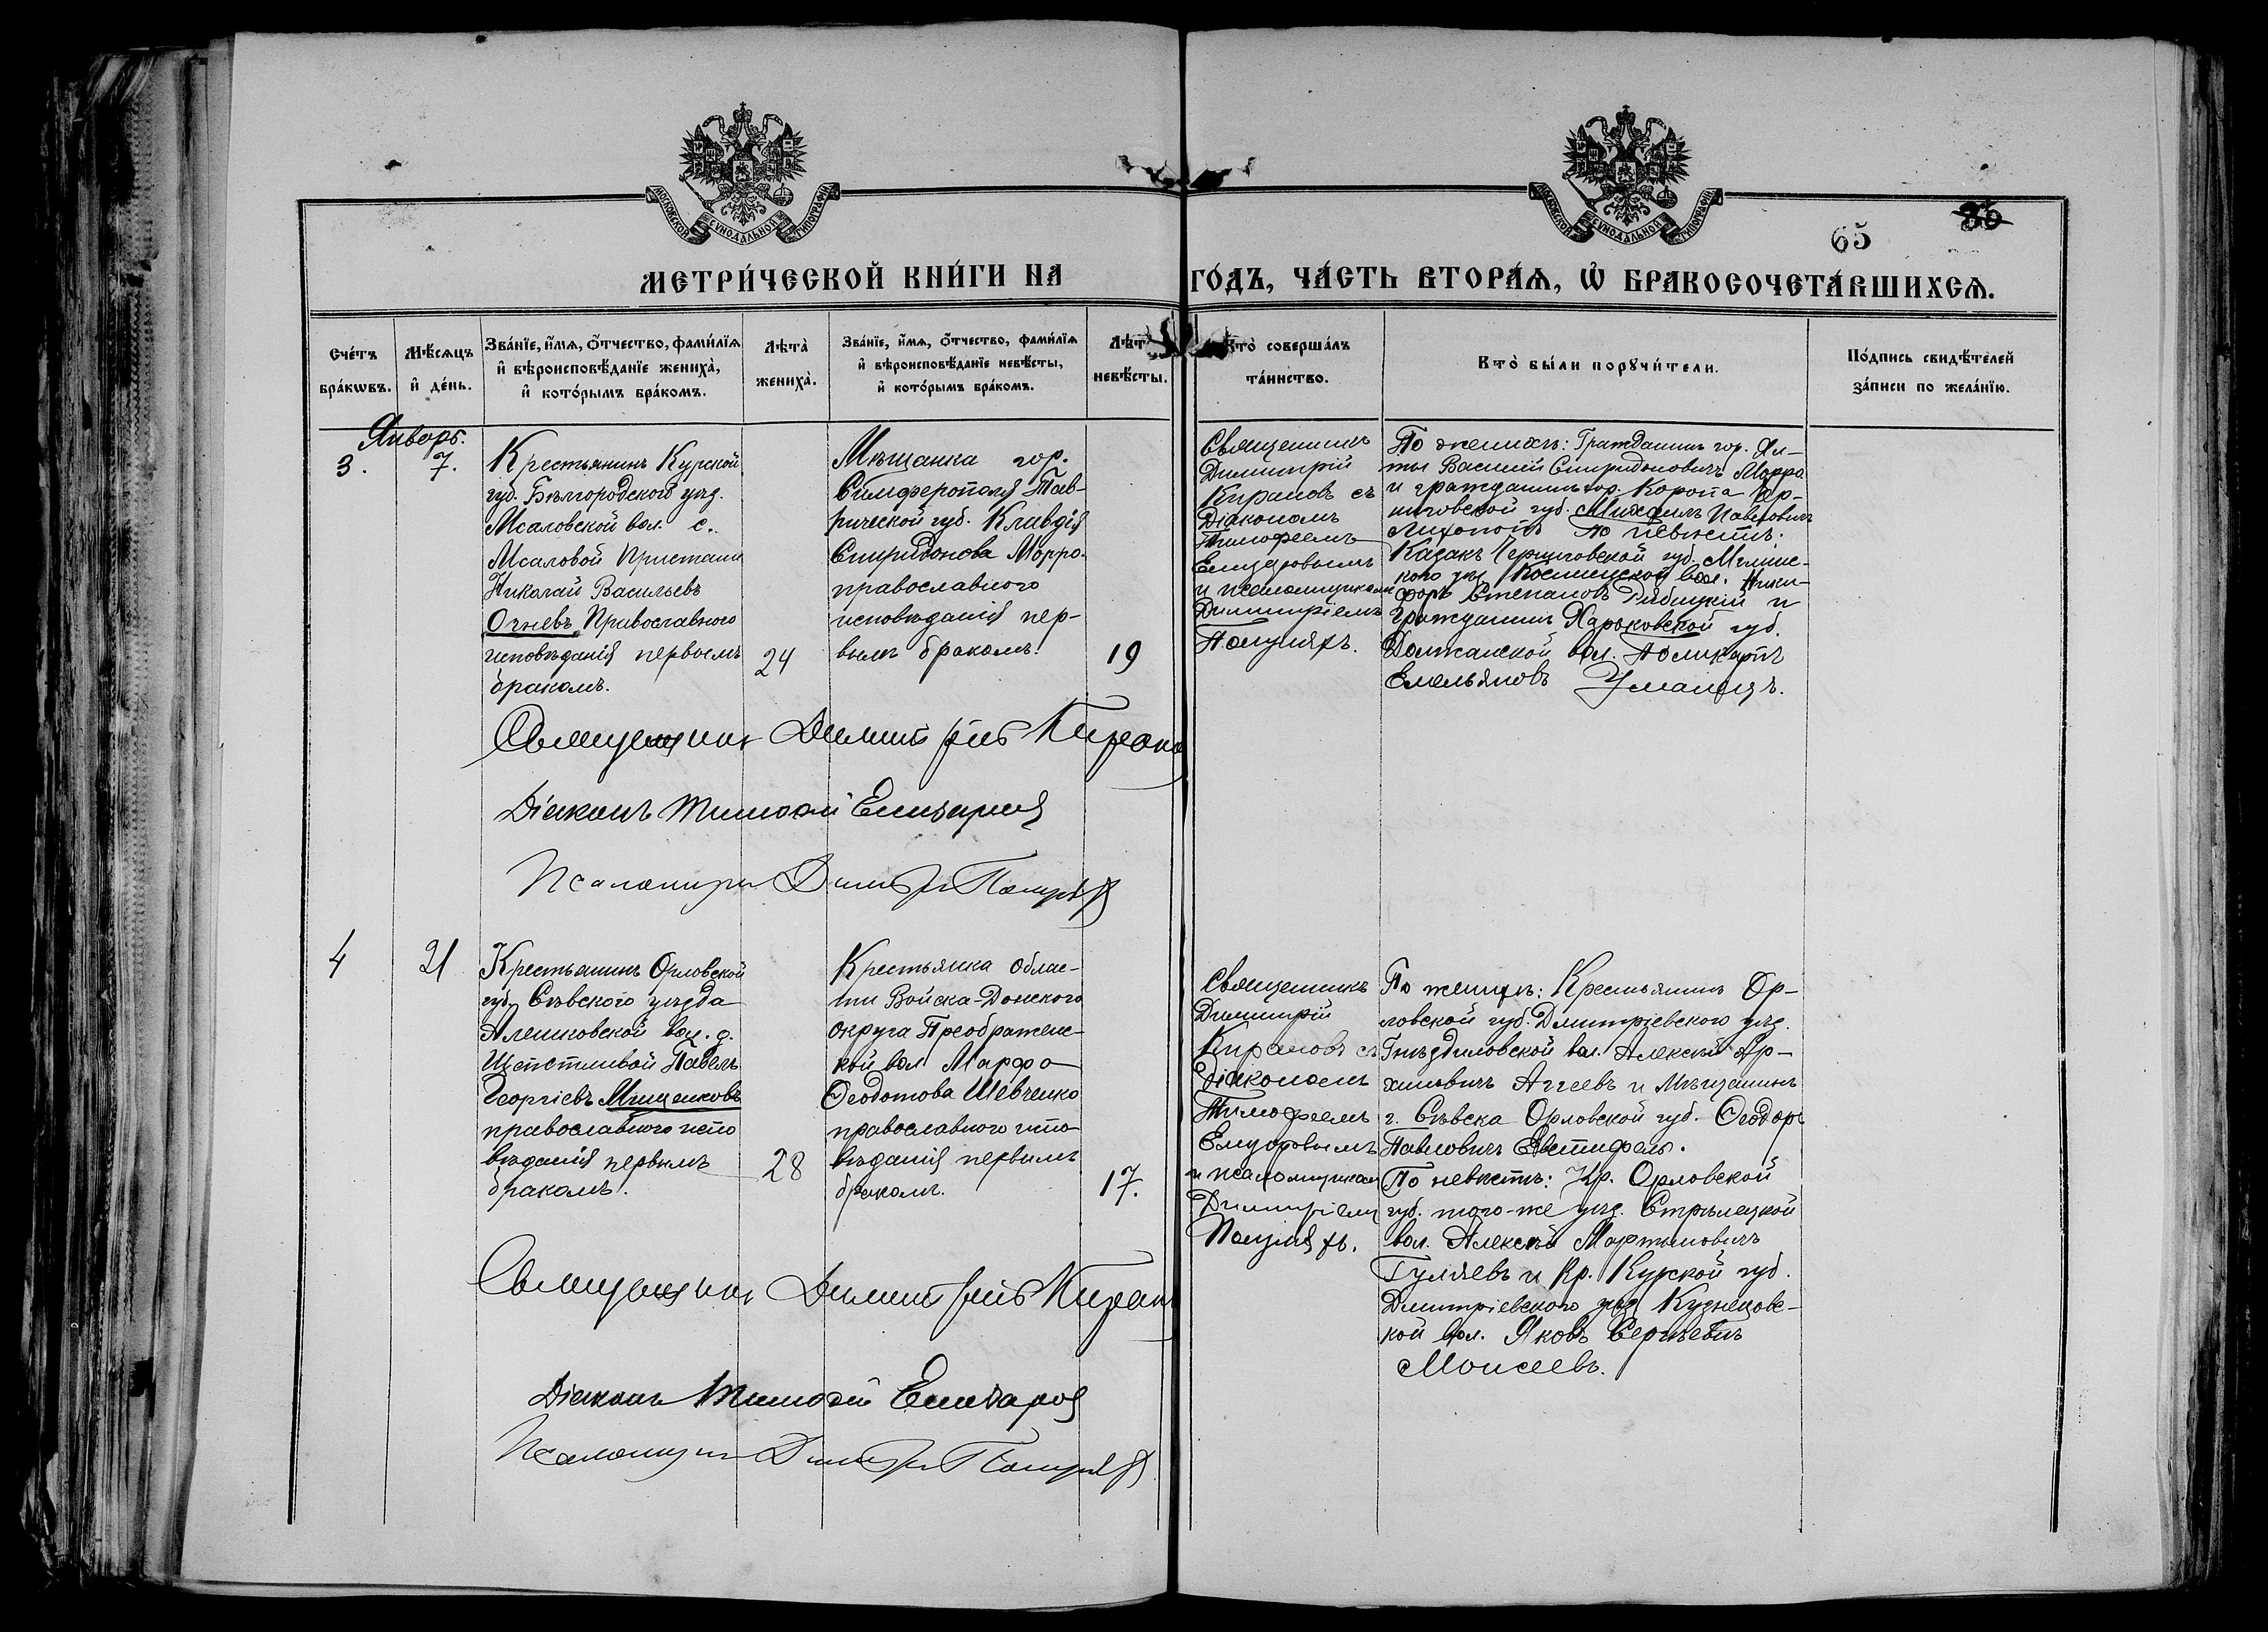 МОСКОВСКОЙ СѴНОДАЛЬНОЙ ТИПОГРАФІИ
МОСКОВСКОЙ СѴНОДАЛЬНОЙ ТИПОГРАФІИ
65 35
МЕТРИ́ЧЕСКОЙ КНИ́ГИ НА ГО́ДЪ, ЧА́СТЬ ВТОРА́Ѧ, Ѡ҆ БРАКОСОЧЕТА́ВШИХСѦ.
Сче́тъ бра́кѡвъ.
Мѣ́сѧцъ и҆ де́нь.
Зва́нїе, и҆́мѧ, ѻ҆́тчество, фами́лїѧ
и҆ вѣроисповѣ́данїе жениха̀,
и҆ кото́рымъ бра́комъ.
Лѣта̀ жениха̀.
Зва́нїе, и҆́мѧ, ѻ҆́тчество, фами́лїѧ
и҆ вѣроисповѣ́данїе невѣ́сты,
и҆ кото́рымъ бра́комъ.
Лѣта̀ невѣ́сты.
Кто̀ соверша́лъ
та́инство.
Кто̀ бы́ли порꙋчи́тели.
По́дпись свидѣ́телей
за́писи по жела́нїю.
Январь.
3.
7.
Крестьянинъ Курской
губ. Бѣлгородского уѣзд.
Мсаловской вол. с.
Мсаловой Пристани
Николай Васильевъ
Огневъ Православного
исповѣданія первоемъ
бракомъ.
24
Мѣщанка гор.
Симферополя Тав-
рической губ. Клавдія
Спиридонова Морро.
православного
исповѣданія пер-
вымъ бракомъ.
19
Священникъ
Димитрій
Кираковъ съ
Діакономъ
Тимофеемъ
и псаломщикомъ
Димитріемъ
По женихѣ: Гражданинъ гор. Ял-
ты Василій Спиридоновичъ Морро
и гражданинъ гор. Коропа Чер-
ниговской губ. Михаилъ Павловичъ
По невѣстѣ:
Казакъ Черниговской губ.
вол. Ники-
форъ Степановъ Рябицкій и
Гражданинъ Харьковской губ.
Должанской вол. Поликарпъ
Емельяновъ Уманецъ.
Священник Димитрій
Діаконъ Тимофей
Псаломщик Димитрій
4
21
Крестьянинъ Орловской
губ. Сѣвского уѣзда
Алешковской вол. д.
Павелъ
Георгіевъ Мищенковъ
православного испо
вѣданія первымъ
бракомъ.
28
Крестьянка облас-
ти Войска-Донского
округа Преображенс-
кой вол Марфа
Ѳеодотова Шевченко
православного испо
вѣданія первымъ
бракомъ.
17.
Священникъ
Димитрій
Кираковъ съ
діакономъ
Тимофеемъ
и псаломщикомъ
Димитріемъ
По женихѣ: Крестьянинъ Ор-
ловской губ. Дмитріевского уѣзд.
Гнѣздиловской вол. Алексѣй Ар-
хиповичъ Агеевъ и Мѣщанинъ
г. Сѣвска Орловской губ. Ѳеодоръ
Павловичъ Евстифѣевъ.
По невѣстѣ: Кр. Орловской
губ. того-же уѣзд. Стрѣлецкой
вол. Алексѣй Мартыновичъ
Гуляевъ и Кр. Курской губ.
Дмитріевского уѣзд. Кузнецовс-
кой вол. Яковъ Сергѣевичъ
Моисеевъ.
Священник Димитрій
Діаконъ Тимофей
Псаломщик Димитрій